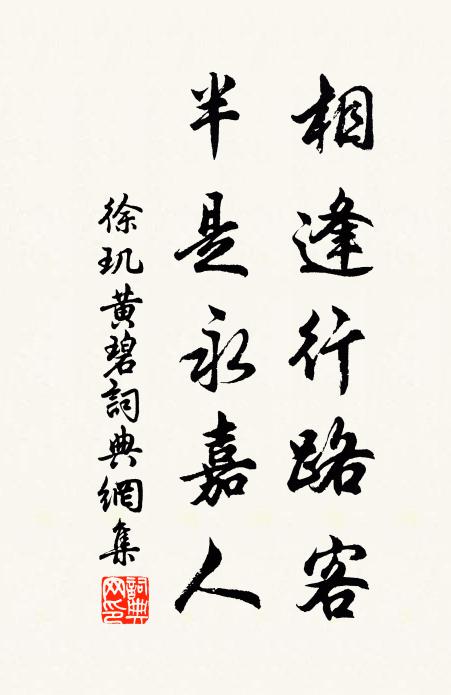 相逢行路客
半是永嘉人
徐玑黄碧詞典網集
詞典网印